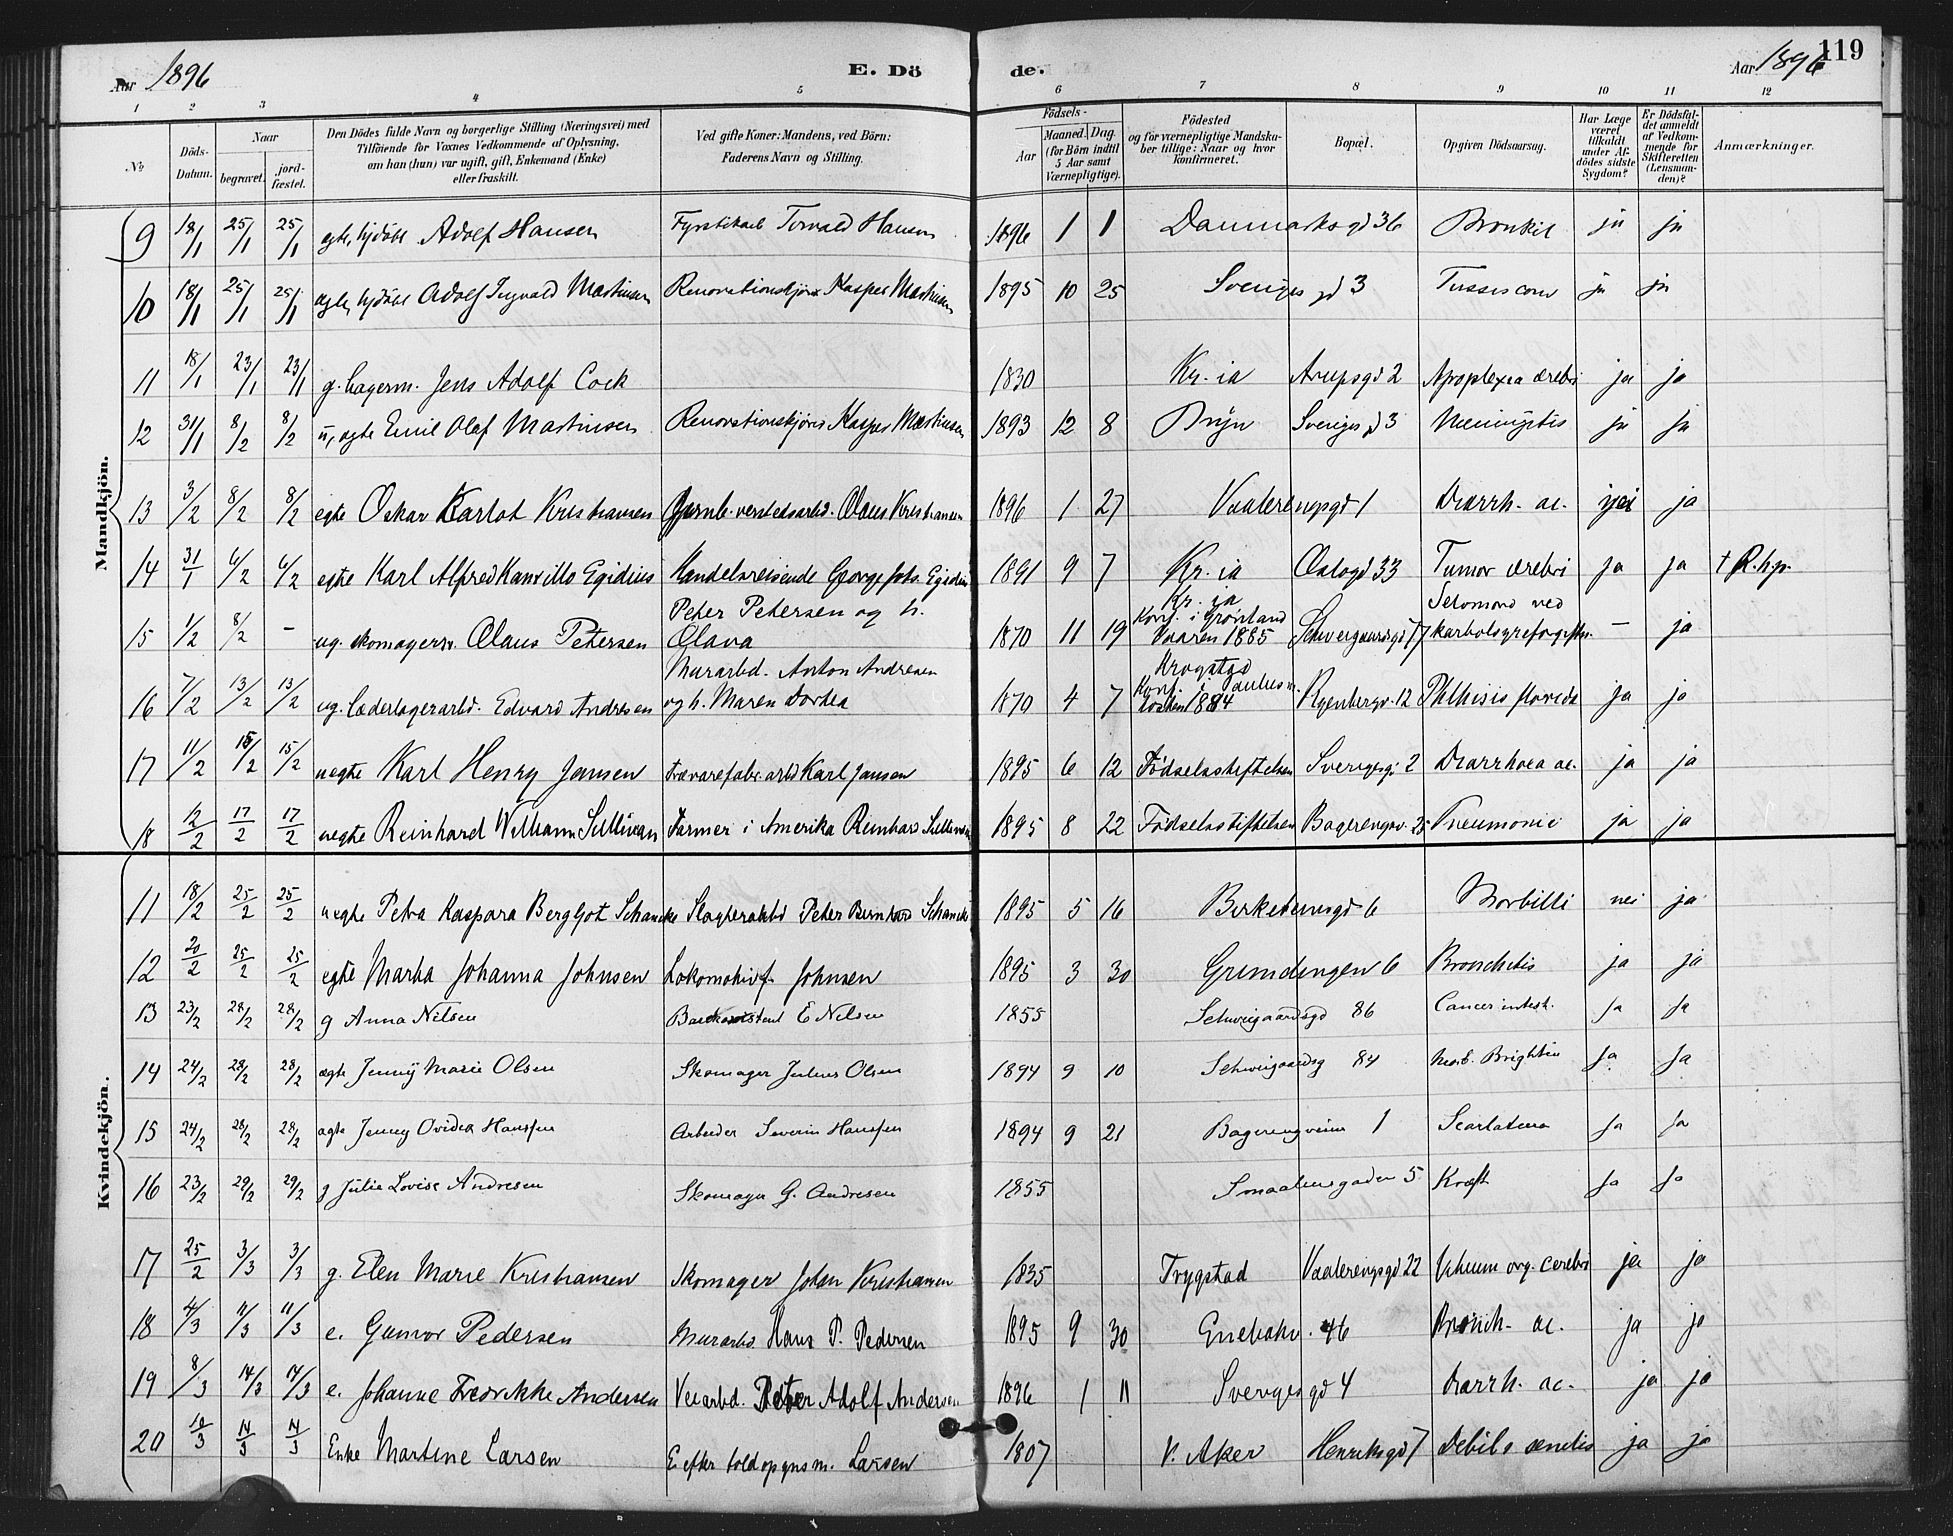 Aar 1896
E. Dö
de.
Aar 1896
119
1 2 3 4 5 6 7 8 9 10 11 12
No
Döds-Datum.
Naar
begravet.
jord-fæstet.
Den Dödes fulde Navn og borgerlige Stilling (Næringsvei) med
Tilföiende for Voxnes Vedkommende af Oplysning,
om han (hun) var ugift, gift, Enkemand (Enke)
eller fraskilt.
Ved gifte Koner: Mandens, ved Börn:
Faderens Navn og Stilling.
Födsels-
Aar
Maaned. Dag.
(for Börn indtil
5 Aar samt
Værnepligtige).
Födested
og for værnepligtige Mandska-
ber tillige: Naar og hvor
konfirmeret.
Bopæl.
Opgiven Dödsaarsag.
Har Læge
været
tilkaldt
under Af-
dödes sidste
Sygdom?
Er Dödsfal-
det anmeldt
af Vedkom-
mende for
Skifteretten
(Lensman-
den)?
Anmærkninger.
Mandkjön.
9 18/1 25/1 25/1 Adolf Hansen Torvald Hansen 1896 1 1 Danmarksgd 36 Bronkit ja ja
10 18/1 25/1 25/1 Adolf Ingvald Martinsen Renovationskjörer Kasper Martinsen 1895 10 25 Sveriges gd 3 ja ja
11 18/1 23/1 23/1 g. Lagerm. Jens Adolf Cock 1830 Kr. ia Arupsgd 2 Apoplexia cerebri ja ja
12 31/1 8/2 8/2 u, ægte Emil Olaf Martinsen Renovationskjörer Kasper Martinsen 1893 12 8 Bryn Sveriges gd 3 Meningitis ja ja
13 3/2 8/2 8/2 egte Oskar Karlot Kristiansen Olaus Kristiansen 1896 1 27 Vaalerengsgd 1 Diarrh. ac. ja
14 31/1 6/2 6/2 egte Karl Alfred Egidius Handelsreisende George Egidius 1891 9 7 Kr. ia Oslogd 33 Tumor cerebri ja ja † R. hp.
15 1/2 8/2 - ug. skomagersv. Olaus Petersen Peter Petersen og h. Olava 1870 11 19 Kr. ia Konf. i Grønland Vaaren 1885 Schweigaardsgd 77 Selvmord ved karbolsyreforgiftn. - ja
16 7/2 13/2 13/2 ug. læderlagerarbd. Edvard Andresen Murarbd. Anton Andresen og h. Maren Dortea 1870 4 7 Konf. i Paulus Høsten 1884 Ryenbergv. 12 Phthisis florida ja ja
17 11/2 15/2 15/2 uegte Karl Henry Jansen trævarefabr. arbd Karl Jansen 1895 6 12 Födselsstiftelsen Sverigesgd 2 Diarrhoea ac. ja ja
18 12/2 17/2 17/2 uegte Reinhard William Sullivan Farmer i Amerika Reinhard Sullivan 1895 8 22 Födselsstiftelsen Bagerengv. 25 Pneumoni ja ja
Kvindekjön.
11 18/2 25/2 25/2 uegte Petra Kaspara Bergljot Schancke Slagterarbd Peter Bernhard Schancke 1895 5 16 Birkelunsgd 6 Morbilli nei ja
12 20/2 25/2 25/2 egte Marta Johanna Johnsen Lokomotivf. Johnsen 1895 3 30 Grundingen 6 Bronchitis ja ja
13 23/2 28/2 28/2 g Anna Nilsen E Nilsen 1855 Schweigaardsgd 86 Cancer intest. ja ja
14 24/2 28/2 28/2 ægte Jenny Marie Olsen Skomager Julius Olsen 1894 9 10 Schweigaardsg 84 Morb. Brightii ja ja
15 24/2 28/2 28/2 ægte Jenny Ovidia Hanssen Arbeider Severin Hanssen 1894 9 21 Bagerengveien 1 Scarlatina ja ja
16 23/2 29/2 29/2 g Julie Lovise Andresen Skomager G. Andresen 1855 Smaalensgaden 5 Kræft ja ja
17 25/2 3/3 3/3 g. Elen Marie Kristiansen Skomager Johan Kristiansen 1835 Trygstad Vaalerengsgd 22 Vitium org. cerebri ja ja
18 4/3 11/3 11/3 e. Gunvor Pedersen Murarbd. Hans P. Pedersen 1895 9 30 Enebakv. 46 Bronch. ac. ja ja
19 8/3 14/3 14/3 e. Johanne Fredrikke Andersen Veiarbd. Peter Adolf Andersen 1896 1 11 Sverigesgd 4 Diarrh. ac. ja ja
20 10/3 14/3 14/3 Enke Martine Larsen E. efter toldopsynsm. Larsen 1807 V. Aker Henriksgd 7 Debilis senilis ja ja